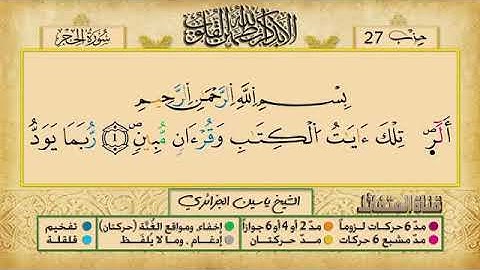 حزب 27
ألا بذكر الله تطمئن القلوب
سُورَةُ الحِجْر
بِسْمِ اِللَّهِ اِلرَّحْمَٰنِ اِلرَّحِيمِ
أَلَٓرۖ تِلْكَ ءَايَٰتُ اُ۬لْكِتَٰبِ وَقُرْءَانٖ مُّبِينٖۖ ١ رُّبَمَا يَوَدُّ
الشيخ ياسين الجزائري
قناة
مدّ 6 حركات لزوماً مدّ 2 أو 4 أو 6 جوازاً إخفاء، ومواقع الغُنَّة (حركتان) تفخيم
مدّ مشبع 6 حركات مدّ حركتان إدغام، وما لا يُلفَظ قلقلة